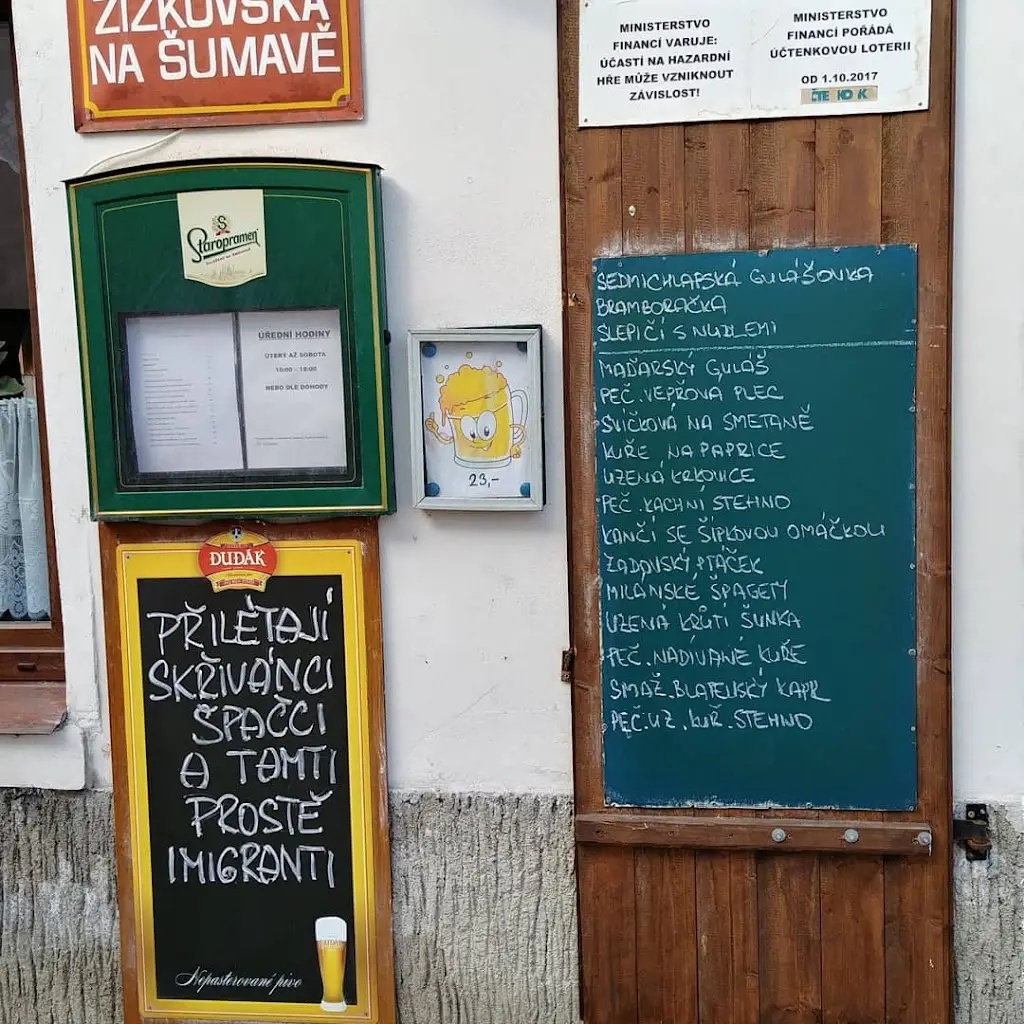 ŽIŽKOVSKÁ
NA ŠUMAVĚ
MINISTERSTVO
FINANCÍ VARUJE:
ÚČASTÍ NA HAZARDNÍ
HŘE MŮŽE VZNIKNOUT
ZÁVISLOST!
MINISTERSTVO
FINANCÍ POŘÁDÁ
ÚČTENKOVOU LOTERII
OD 1.10.2017
S
Staropramen
ÚŘEDNÍ HODINY
ÚTERÝ AŽ SOBOTA
NEBO DLE DOHODY
23,-
DUDÁK
PŘILÉTAJÍ
SKŘIVÁNCI
ŠPAČCI
A TAMTI
PROSTĚ
IMIGRANTI
Nepasterované pivo
SEDMICHLAPSKÁ GULÁŠOVKA
BRAMBORAČKA
SLEPIČÍ S NUDLEMI
MAĎARSKÝ GULÁŠ
PEČ. VEPŘOVÁ PLEC
SVÍČKOVÁ NA SMETANĚ
KUŘE NA PAPRICE
UZENÁ KRKOVICE
PEČ. KACHNÍ STEHNO
KANČÍ SE ŠÍPKOVOU OMÁČKOU
ŽĎÁNSKÝ PTÁČEK
MILÁNSKÉ ŠPAGETY
UZENÁ KRŮTÍ ŠUNKA
PEČ. NADÍVANÉ KUŘE
SMAŽ. BLATENSKÝ KAPR
PEČ. UZ. KUŘ. STEHNO